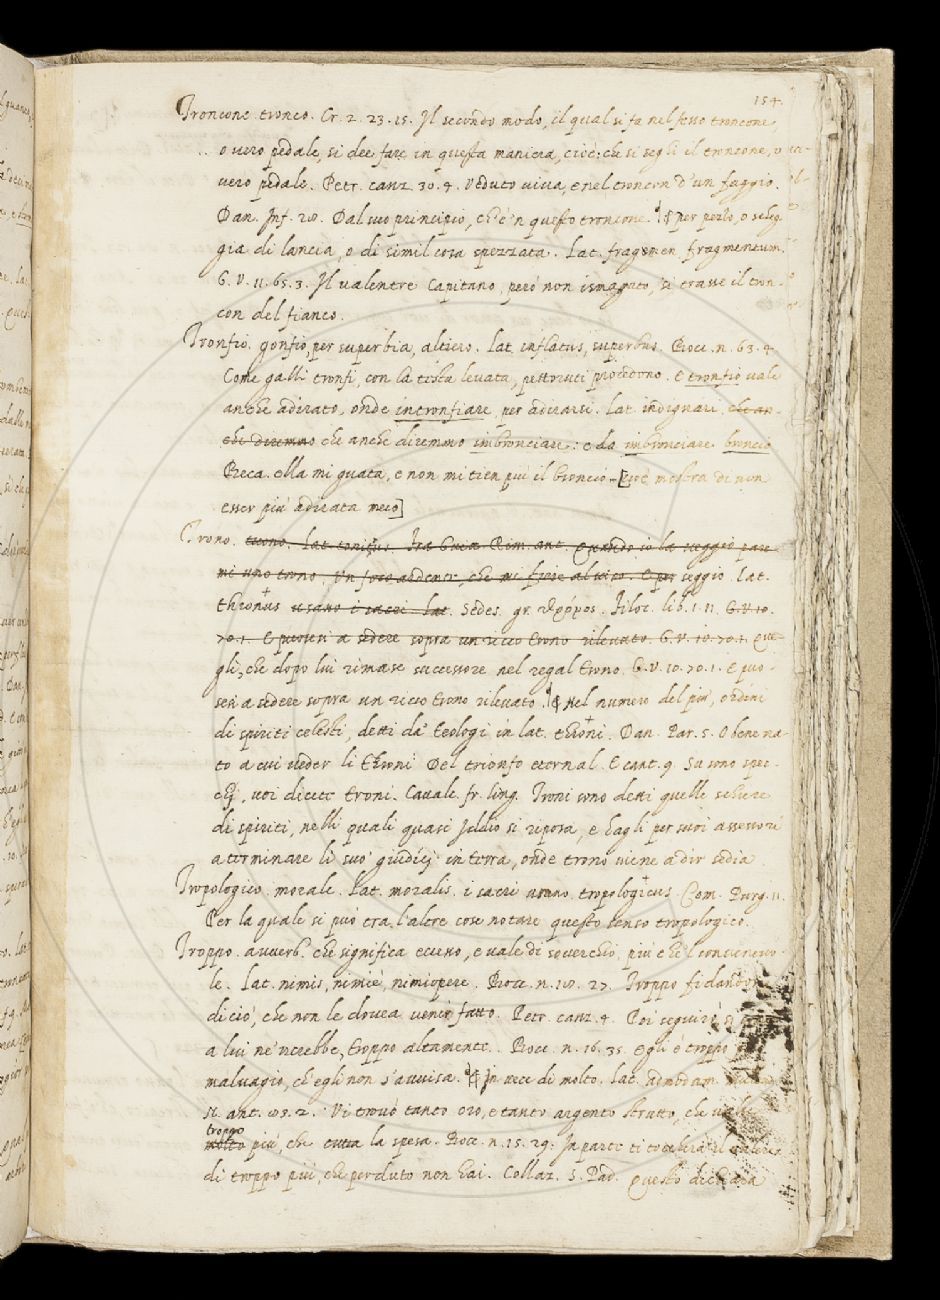 154.
Troncone tronco. Cr. 2. 23. 15. Il secondo modo, il qual si fa nel fesso troncone,
o vero pedale, si dee fare in questa maniera, cioè: che si seghi il troncone, o
vero pedale. Petr. canz. 30. 4. Veduto viva, e nel troncon d'un faggio.
Dan. Inf. 28. Dal suo principio, ch'è 'n questo troncone. ¶ per pezzo, o scheg-
gia di lancia, o di simil cosa spezzata. Lat. fragmen fragmentum.
G. V. 11. 65. 3. Il valentre Capitano, però non ismagato, si trasse il tron-
con del fianco.
Tronfio. gonfio, per superbia, altiero. Lat. inflatus, superbus. Bocc. n. 63. 4.
Come galli tronfi, con la testa levata, pettoruti procedono. E tronfio vale
anche adirato, onde intronfiare, per adirarsi. Lat. indignari che an-
che diremmo che anche diremmo imbronciare: e da imbronciare. broncio
Brca. ella mi guata, e non mi tien più il broncio. [cioè mostra di non
esser più adirata meco]
Trono. tuono. Lat. tonitus. Fra Guit. Rim. ant. Quando io la veggio par-
mi uno trono. Un foco ardente, che mi fiere al viso. E per seggio. Lat.
thronus usano i sacri. Lat. Sedes. gr. θρόνος. Filoc. lib. 1. 11. G. V. 10.
70. 1. E puosesi a sedere sopra un ricco trono rilevato. G. V. 10. 70. 1. Que-
gli, che dopo lui rimase successore nel regal trono. G. V. 10. 70. 1. E puo-
sesi a sedere sopra un ricco trono rilevato. ¶ Nel numero del più, ordini
di spiriti celesti, detti da' teologi in lat. throni. Dan. Par. 5. O bene na-
to a cui veder li throni Del trionfo eternal. E cant. 9. Su sono spec-
chj, voi dicete troni. Cavalc. fr. ling. Troni sono detti quelle schiere
di spiriti, nelli quali quasi Iddio si riposa, e hagli per suoi assessori
a terminare li suo' giudicj in terra, onde trono viene a dir sedia.
Tropologico. morale. Lat. moralis. i sacri usano tropologicus. Com. Purg. 11.
Per la quale si può tra l'altre cose notare questo senso tropologico.
Troppo. avverb. che significa eccesso, e vale di soverchio, più che 'l convenevo-
le. Lat. nimis, nimiè, nimiopere. Bocc. n. 18. 27. Troppo fidandosi
di ciò, che non le dovea venir fatto. Petr. canz. 4. Poi seguirò
a lui ne 'ncrebbe, troppo altamente. Bocc. n. 16. 35. egli è troppo
malvagio, ch'egli non s'avvisa. ¶ in vece di molto. Lat. admodum.
ant. 85. 2. Vi trovò tanto oro, e tanto argento strutto, che valse
troppo
molto più, che tutta la spesa. Bocc. n. 15. 29. In parte ti tocchèrà il valere
di troppo più, che perduto non hai. Collaz. S. Pad. Questo dichiara